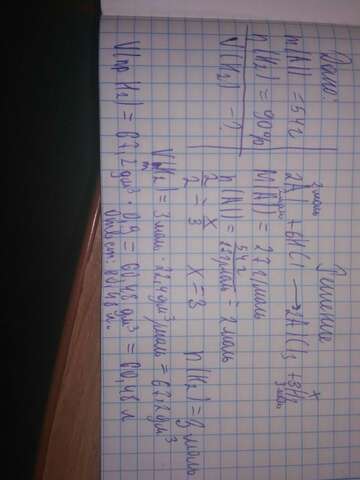 Дано:
m(Al) = 54г
η(H₂) = 90%
V(H₂) - ?
Решение
2моль x
2Al + 6HCl → 2AlCl₃ + 3H₂
2моль 3моль
M(Al) = 27 г/моль
n(Al) = 54г / 27г/моль = 2 моль
2/2 = x/3 x = 3 n(H₂) = 3 моль
V(H₂) = 3 моль · 22,4 дм³/моль = 67,2 дм³
V(пр H₂) = 67,2 дм³ · 0,9 = 60,48 дм³ = 60,48 л
Ответ: 60,48 л.